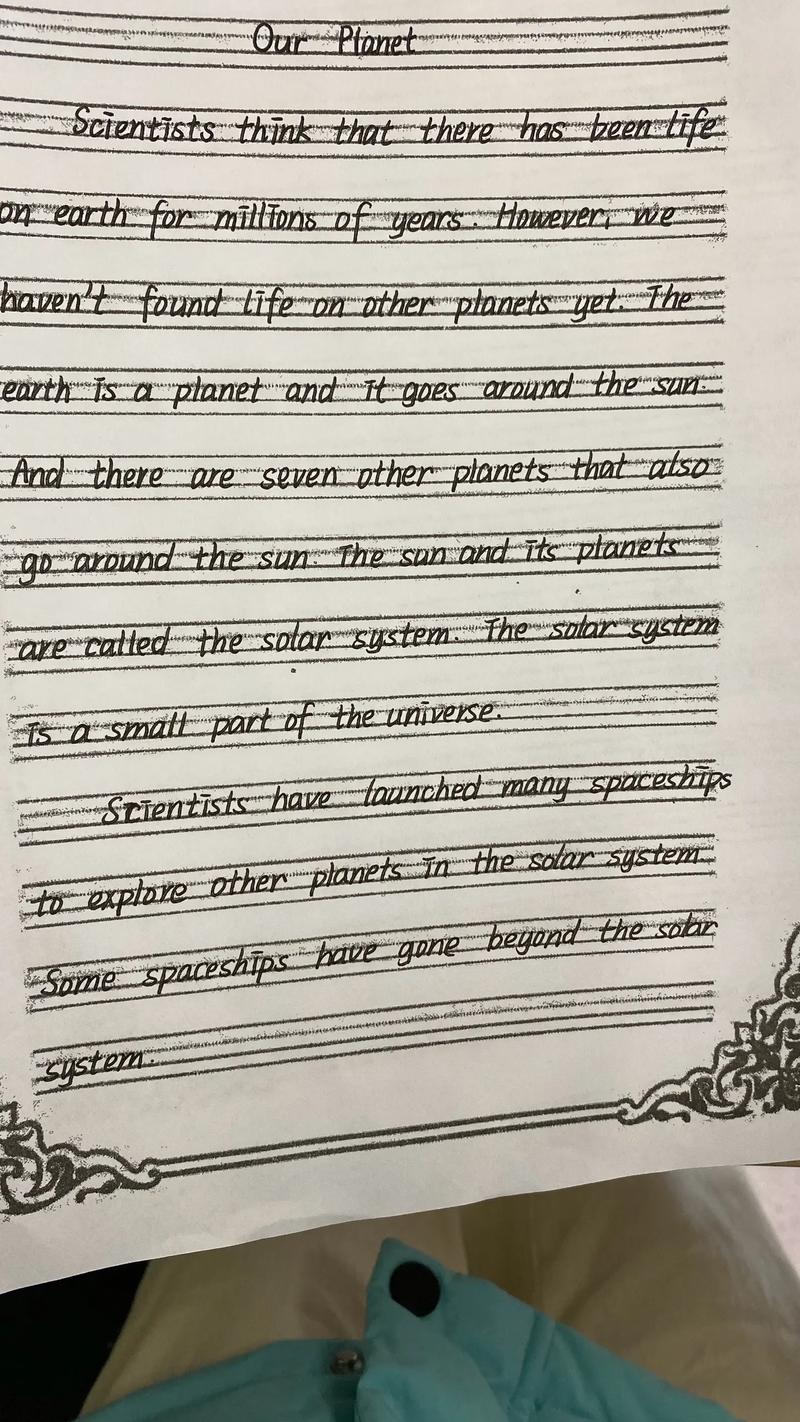 Our Planet
Scientists think that there has been life
on earth for millions of years. However, we
haven't found life on other planets yet. The
earth is a planet and it goes around the sun.
And there are seven other planets that also
go around the sun. The sun and its planets
are called the solar system. The solar system
is a small part of the universe.
Scientists have launched many spaceships
to explore other planets in the solar system.
Some spaceships have gone beyond the solar
system.